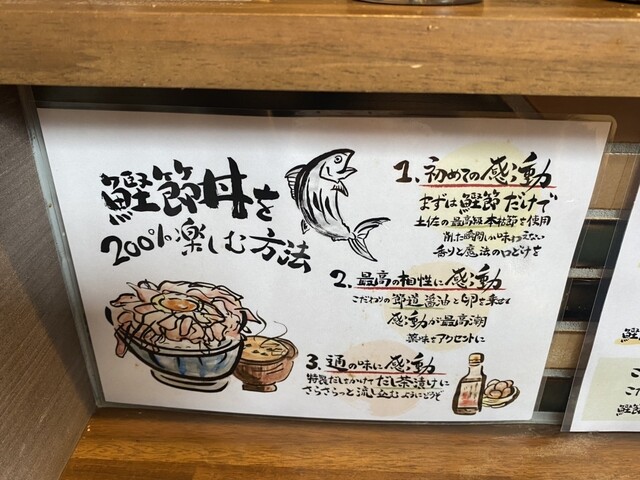 鰹節丼を
200%楽しむ方法
1. 初めての感動
まずは鰹節だけで
土佐の最高級本枯節を使用
削った瞬間しか味わえない
香りと魔法の口どけを
2. 最高の相性に感動
こだわりの 醤油と卵を乗せ
感動が最高潮
薬味をアクセントに
3. 通の味に感動
特製だしをかけてだし茶漬けに
さらさらっと流し込むようにどうぞ
鰹
こ
こだ
鰹節